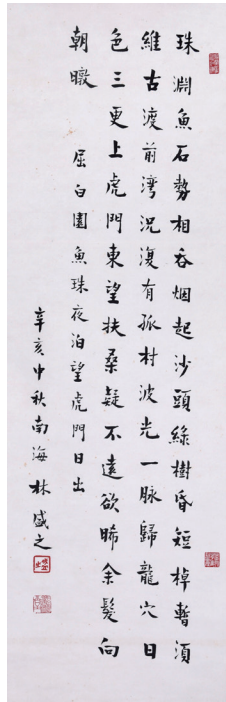 珠淵魚石勢相吞烟起沙頭綠樹昏短棹暫須
維古渡前湾況復有孤村波光一脉歸龍穴日
色三更上虎門東望扶桑疑不遠欲晞余髮向
朝暾 屈白園魚珠夜泊望虎門日出
辛亥中秋南海林盛之